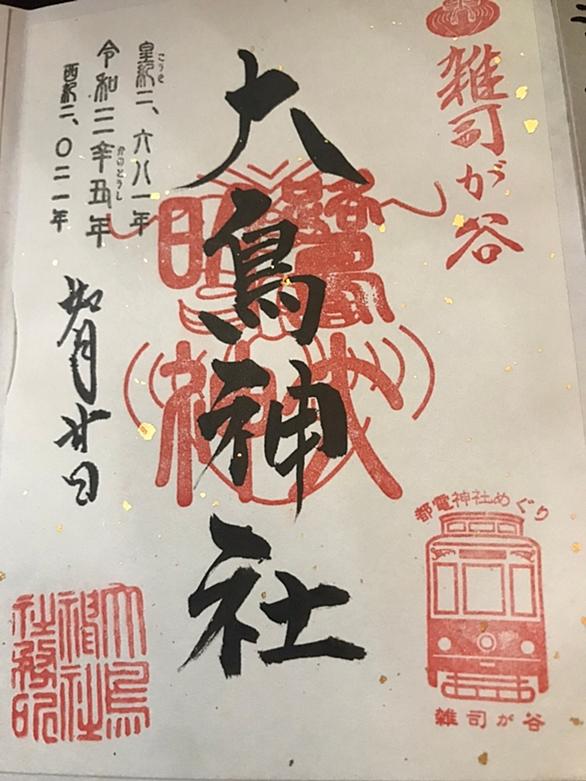 雑司が谷
大鳥神社
皇紀二、六八一年
こうき
令和三辛丑年
かのとうし
西紀二、〇二一年
如月廿日
都電神社めぐり
雑司が谷
大鳥
神社
社務所